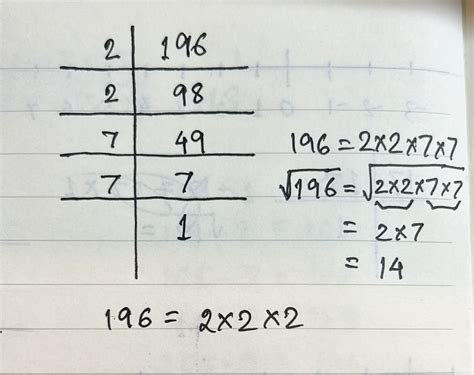 2 | 196
2 | 98
7 | 49
7 | 7
1
196 = 2×2×7×7
√196 = √2×2×7×7
= 2×7
= 14
196 = 2×2×2